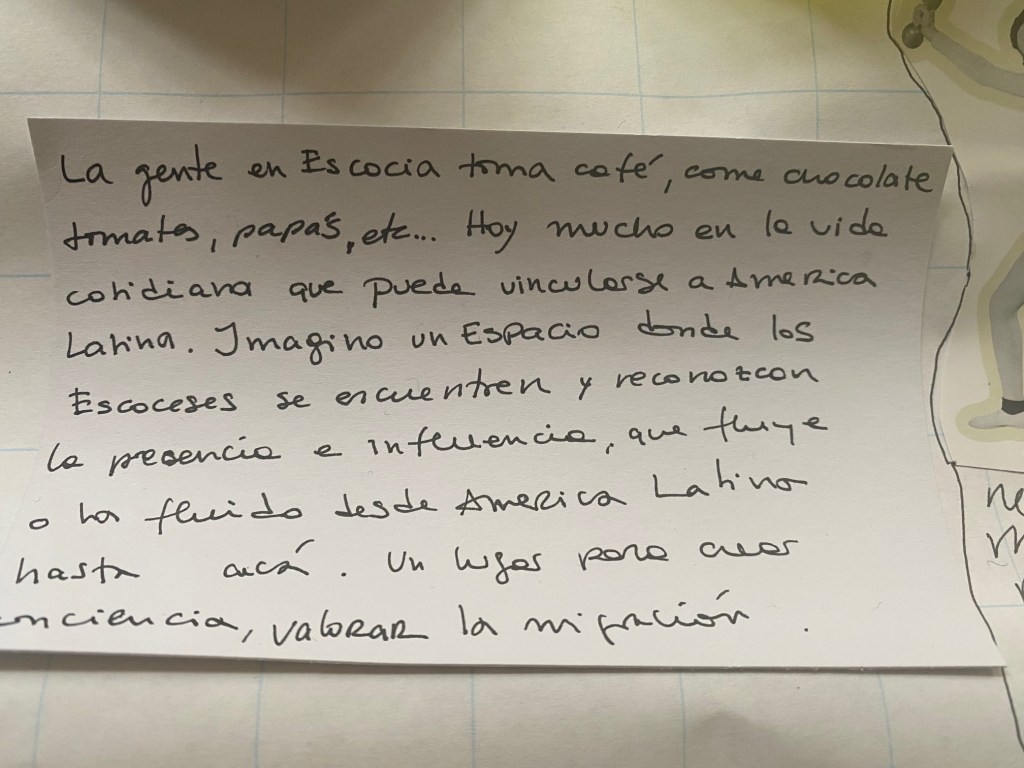 La gente en Escocia toma café, come chocolate
tomates, papas, etc... Hay mucho en la vida
cotidiana que puede vincularse a America
Latina. Imagino un Espacio donde los
Escoceses se encuentren y reconozcan
la presencia e influencia, que fluye
o ha fluido desde America Latina
hasta acá. Un lugar para crear
onciencia, valorar la migración.